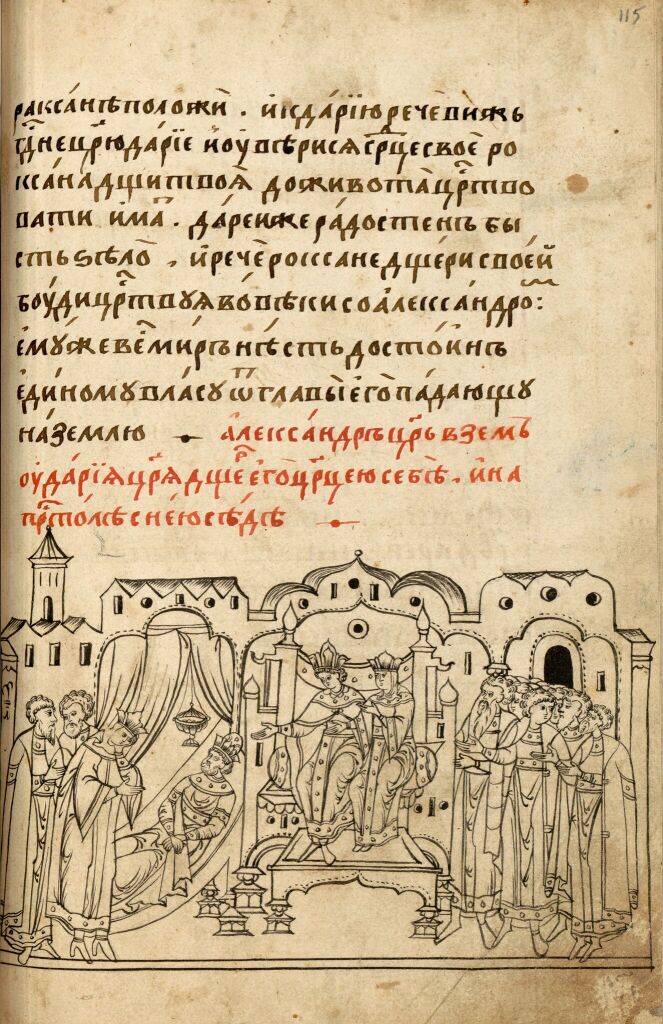 115
раѯа́нѣ положи̏ . и҆ к̾да́рїю рече̏ ви́жь
гд҃не цр҃ю да́рїе и҆ оу҆вѣ́рисѧ ср҃це свое̏ ро
кса́на дщи твоѧ̏ до живота̏ црⷭ҇тво
вати и҆́ма . да́реи же ра́достенъ бы
сть ѕѣло̏ . и҆ рече̏ роѯане дще́ри свое́й
бꙋ́ди црⷭ҇твꙋѧ во вѣ́ки со а҆леѯа́ндроⷨ:
е҆мꙋ́же в се́мъ ми́ръ нѣ́сть досто́инъ
е҆ди́номꙋ вла́сꙋ ѿ главы̏ е҆го̏ па́дающꙋ
на́ землю
а҆леѯа́ндръ цр҃ь взеⷨ
оу҆ да́рїѧ цр҃ѧ дще́рь е҆го̏ цр҃цею себѣ̏ . и҆ на
прⷭ҇то́лѣ с не́ю сѣ́дѣ